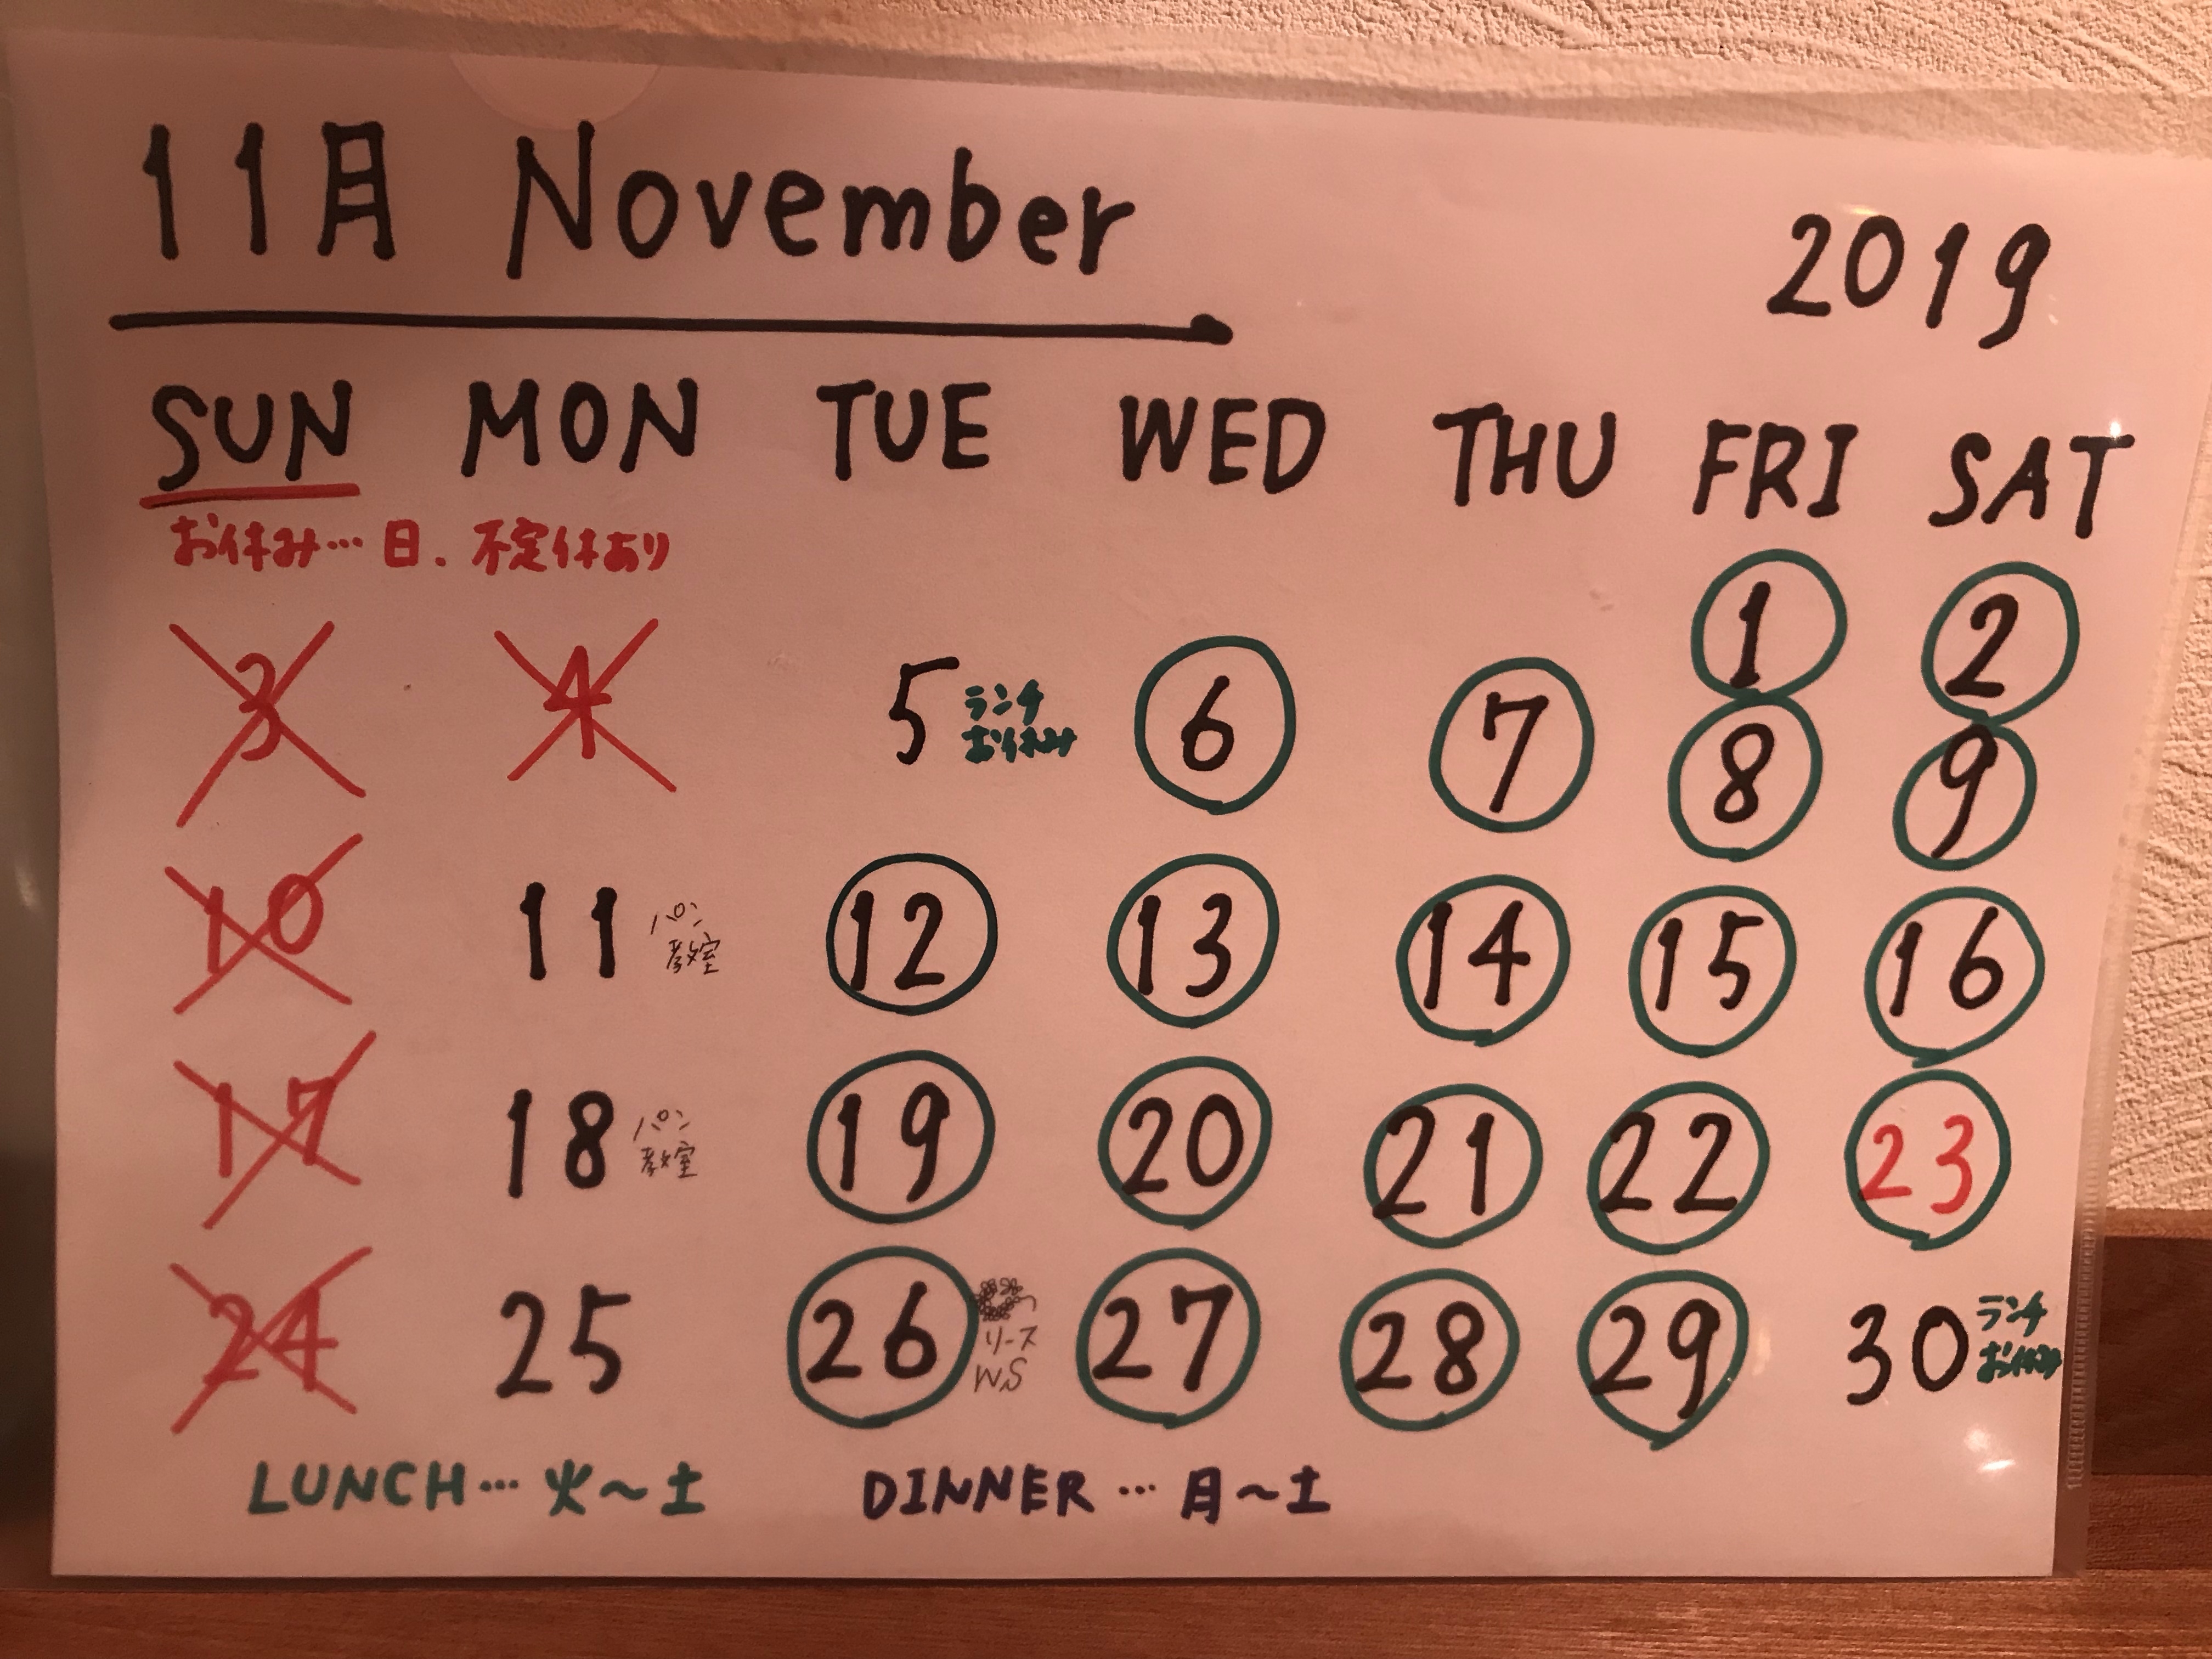 11月 November
2019
SUN MON TUE WED THU FRI SAT
お休み…日.不定休あり
1 2
3 4 5 ランチ お休み 6 7 8 9
10 11 パン 教室 12 13 14 15 16
17 18 パン 教室 19 20 21 22 23
24 25 26 リース WS 27 28 29 30 ランチ お休み
LUNCH…火〜土 DINNER…月〜土